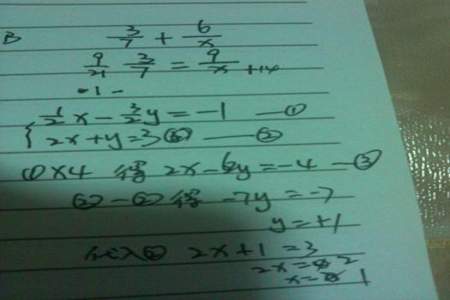 B 3/7 + 6/x
9/21 3/7 = 9/x+14
-1-
{ 1/2x - 3/2y = -1 —①
2x+y=3 —②
①×4 得 2x-6y=-4 —③
得 -7y=-7
y=+1
代入② 2x+1=3
2x=2
x=1